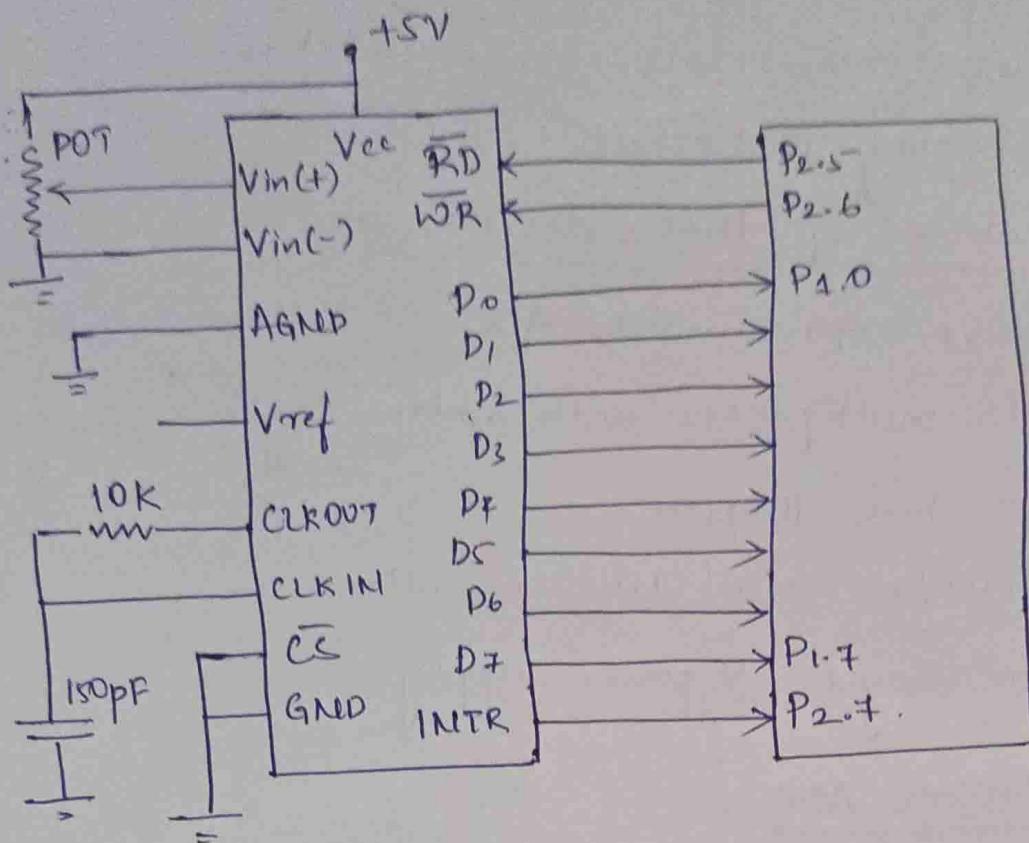 +5V
POT
Vcc
Vin(+)
Vin(-)
AGND
Vref
10K
CLKOUT
CLK IN
150pF
C̅S̅
GND
R̅D̅
W̅R̅
D0
D1
D2
D3
D4
D5
D6
D7
INTR
P2.5
P2.6
P1.0
P1.7
P2.7.